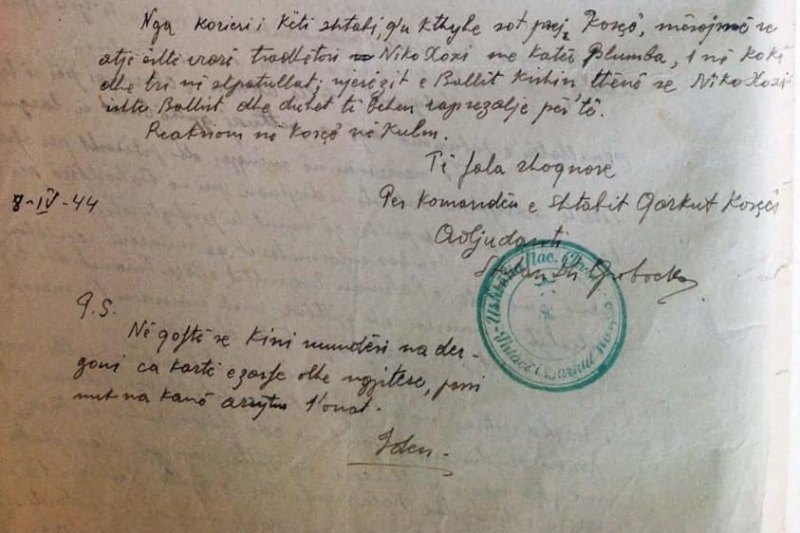 Nga korieri i këti shtabi, q'u kthye sot prej Korçë, mësojmë se
atje ishte vrarë tradhëtori Niko Xoxi me katër plumba, 1 në kokë
dhe tri në shpatullat; njerëzit e Ballit kishin thënë se Niko Xoxi
ishte Ballist dhe duhet të bëhen reprezalje për të.
Reaksioni në Korçë në kulm.
Të fala shoqnore
8-IV-44
Per Komandën e Shtabit Qarkut Korçës
Adjudanti
P.S.
Në qoftë se kini mundësi na der-
goni ca kartë e zarfe dhe ngjitëse, pasi
na kanë
Iden.